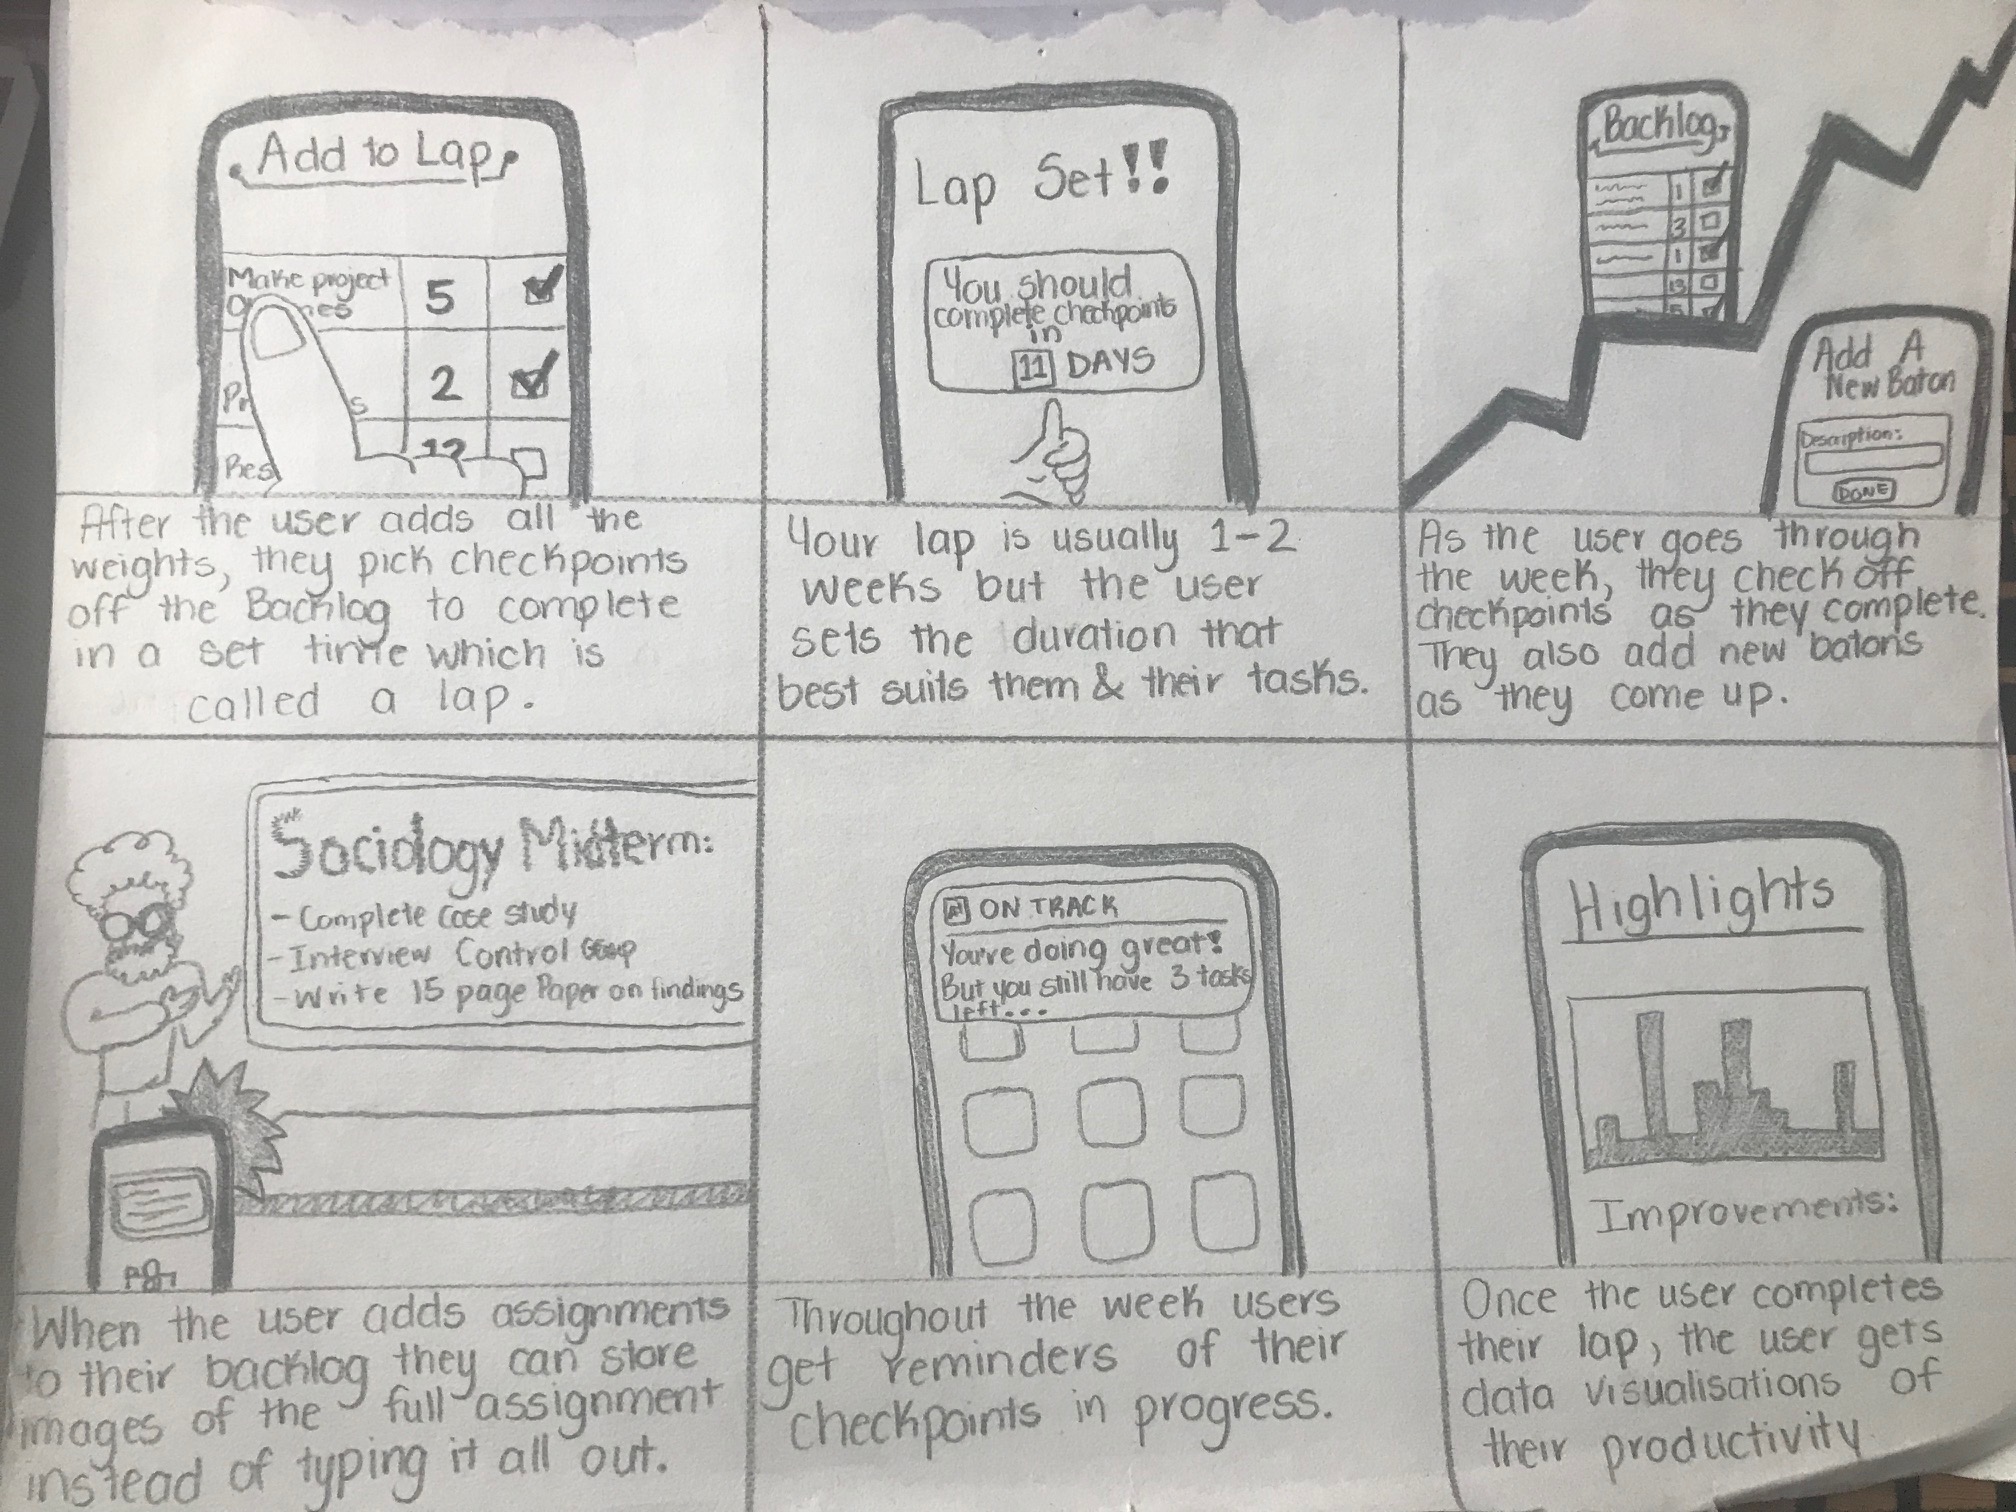 Add to Lap
Make project
5
2
Res
After the user adds all the
weights, they pick checkpoints
off the Backlog to complete
in a set time which is
called a lap.
Lap Set!!
You should
complete checkpoints
in
11 DAYS
Your lap is usually 1-2
weeks but the user
sets the duration that
best suits them & their tasks.
Backlog
1
3
1
13
5
Add A
New Baton
Description:
DONE
As the user goes through
the week, they check off
checkpoints as they complete.
They also add new batons
as they come up.
Sociology Midterm:
- Complete case study
- Interview Control Group
- Write 15 page Paper on findings
When the user adds assignments
to their backlog they can store
images of the full assignment
instead of typing it all out.
ON TRACK
You're doing great!
But you still have 3 tasks
left...
Throughout the week users
get reminders of their
checkpoints in progress.
Highlights
Improvements:
Once the user completes
their lap, the user gets
data visualisations of
their productivity